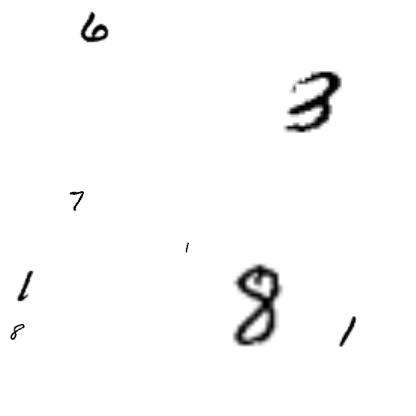 6
3
7
1
1
8
8 1